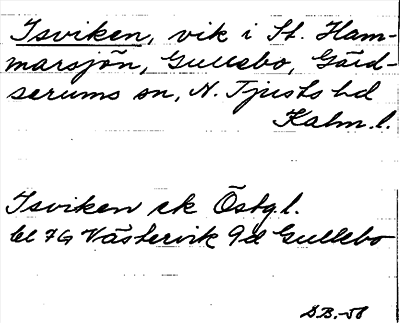 Isviken, vik i St. Ham-
marsjön, Gullebo, Gärd-
serums sn, N. Tjusts hd
Kalm. l.
Isviken ek Östg. l.
bl 7G Västervik 9d Gullebo
D.B.-58